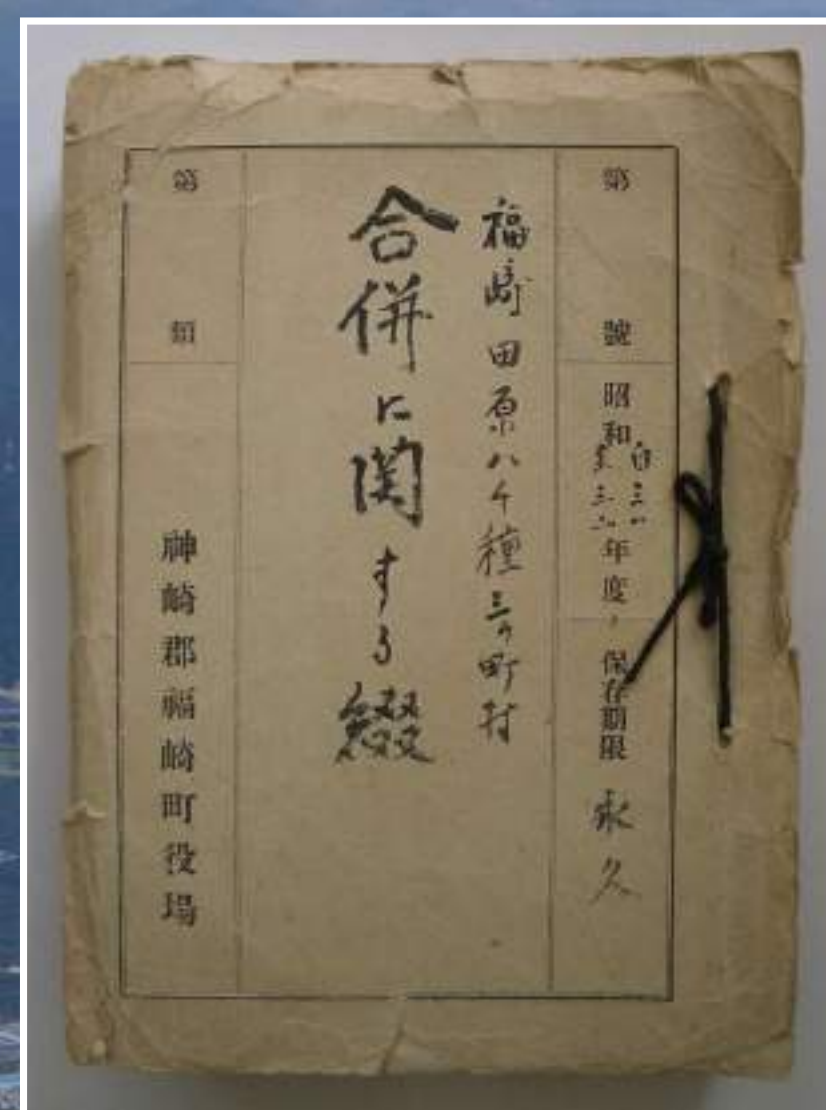 第 號
昭和 自三一 至三一 年度
保存期限 永久
福崎田原八千種三ヶ町村
合併に関する綴
第 類
神崎郡福崎町役場